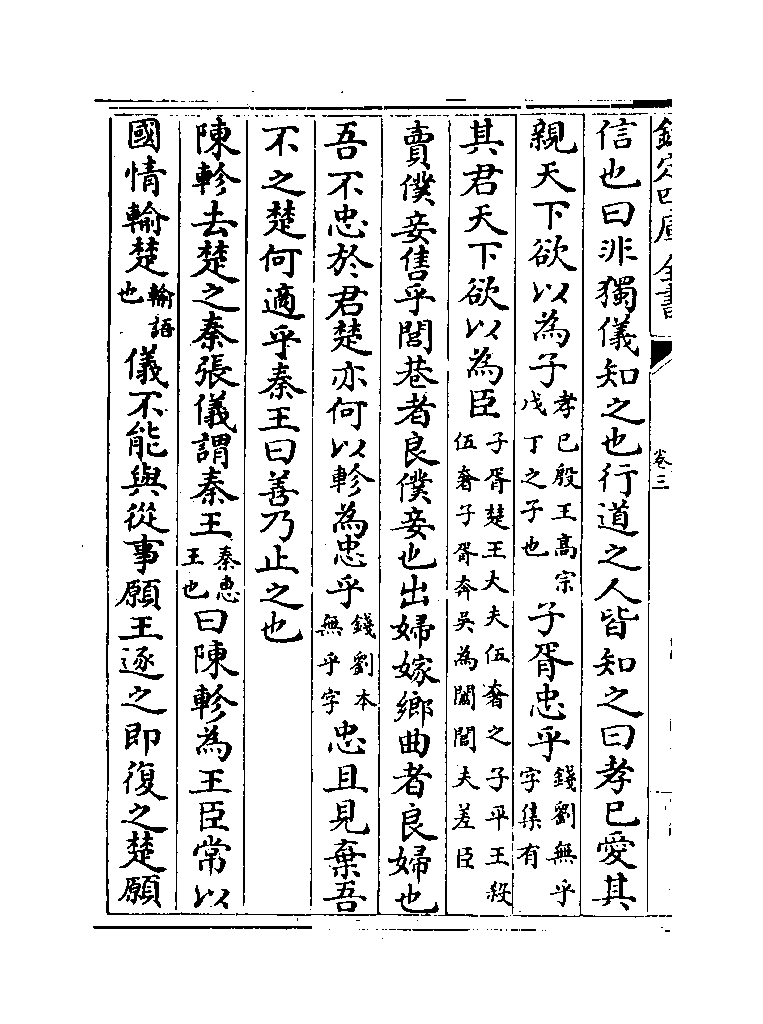 欽定四庫全書
卷三
信也曰非獨儀知之也行道之人皆知之曰孝已愛其
親天下欲以為子孝已殷王髙宗戊丁之子也子胥忠乎錢劉無乎字集有
其君天下欲以為臣子胥楚王大夫伍奢之子平王殺伍奢子胥奔吳為闔閭夫差臣
賣僕妾售乎閭巷者良僕妾也出婦嫁鄉曲者良婦也
吾不忠於君楚亦何以軫為忠乎錢劉本無乎字忠且見棄吾
不之楚何適乎秦王曰善乃止之也
陳軫去楚之秦張儀謂秦王秦惠王也曰陳軫為王臣常以
國情輸楚輸語也儀不能與從事願王逐之即復之楚願